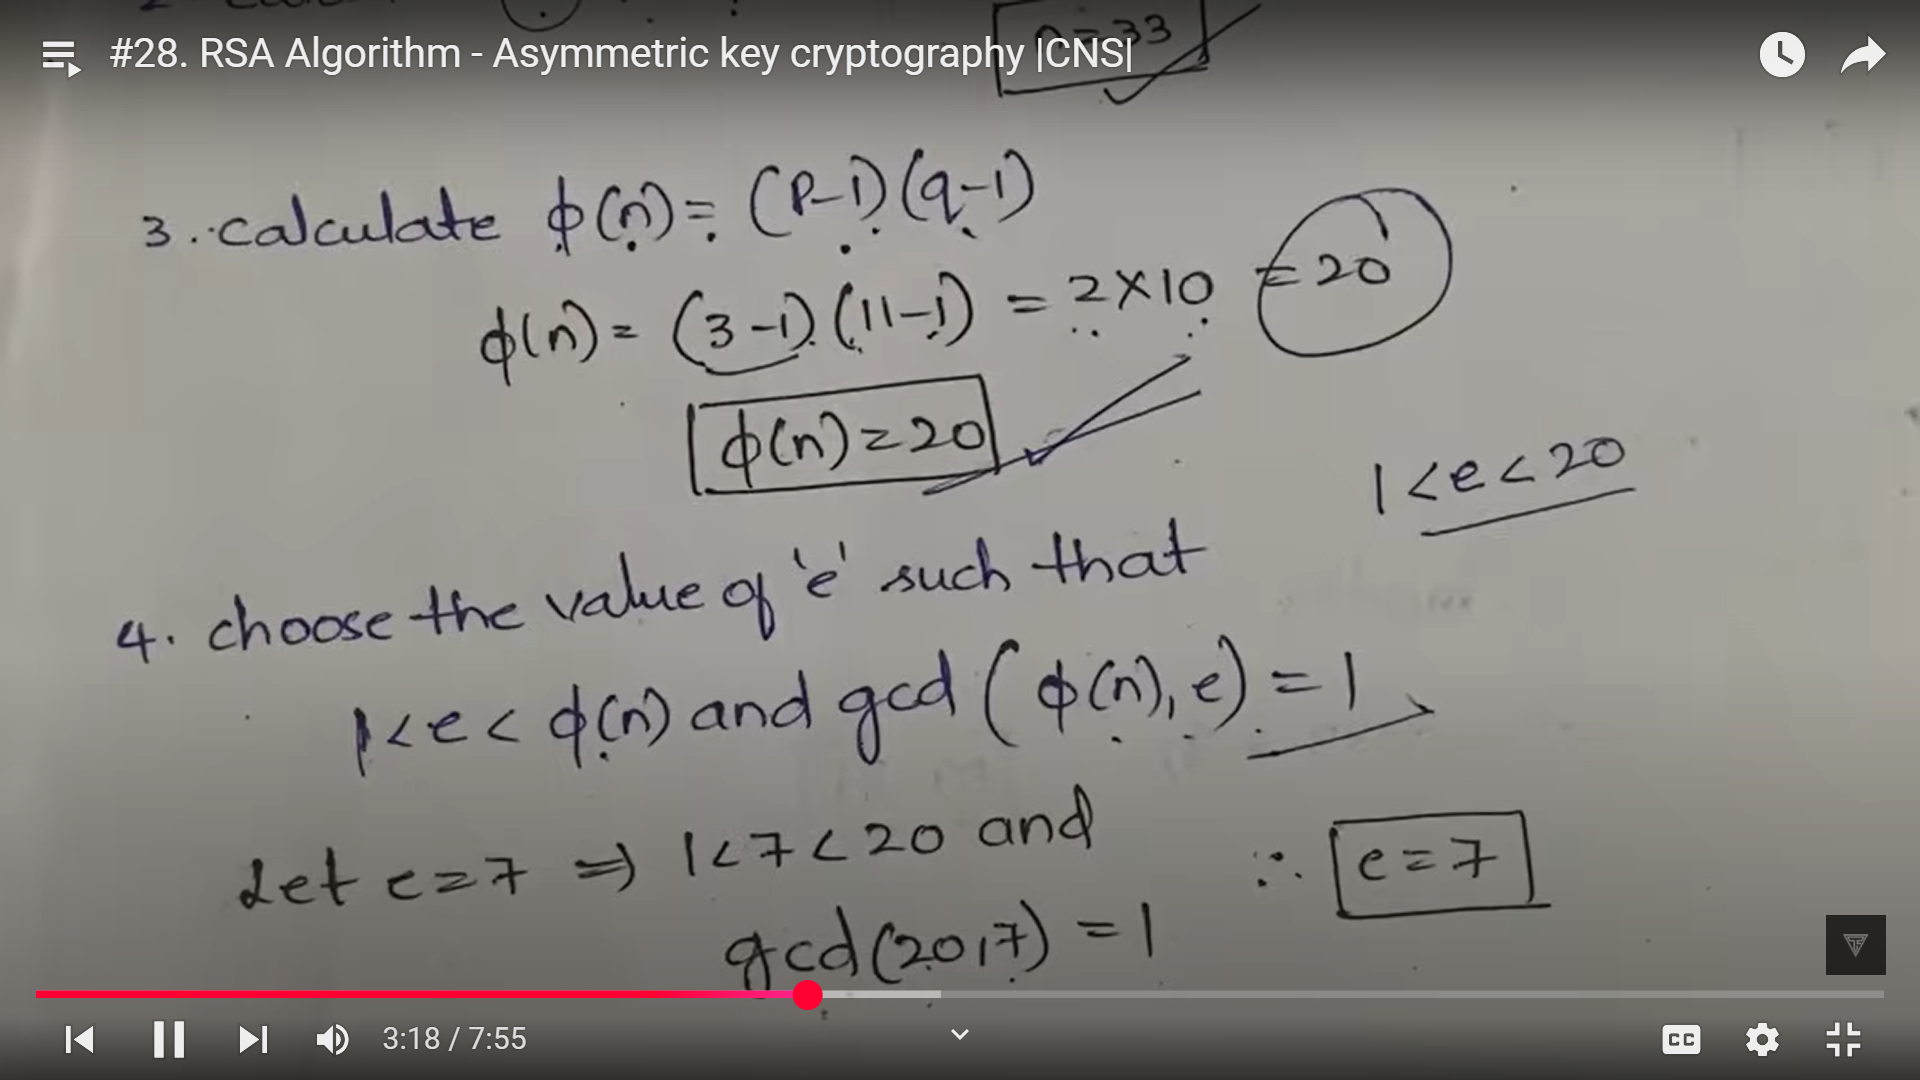 n=33
#28. RSA Algorithm - Asymmetric key cryptography |CNS|
3. calculate ϕ(n)= (P-1)(q-1)
ϕ(n)= (3-1)(11-1) = 2X10 =20
ϕ(n)=20
1<e<20
4. choose the value of 'e' such that
1<e< ϕ(n) and gcd (ϕ(n), e) =1
Let e=7 => 1<7<20 and
gcd(20,7) =1
∴ e=7
3:18 / 7:55
CC